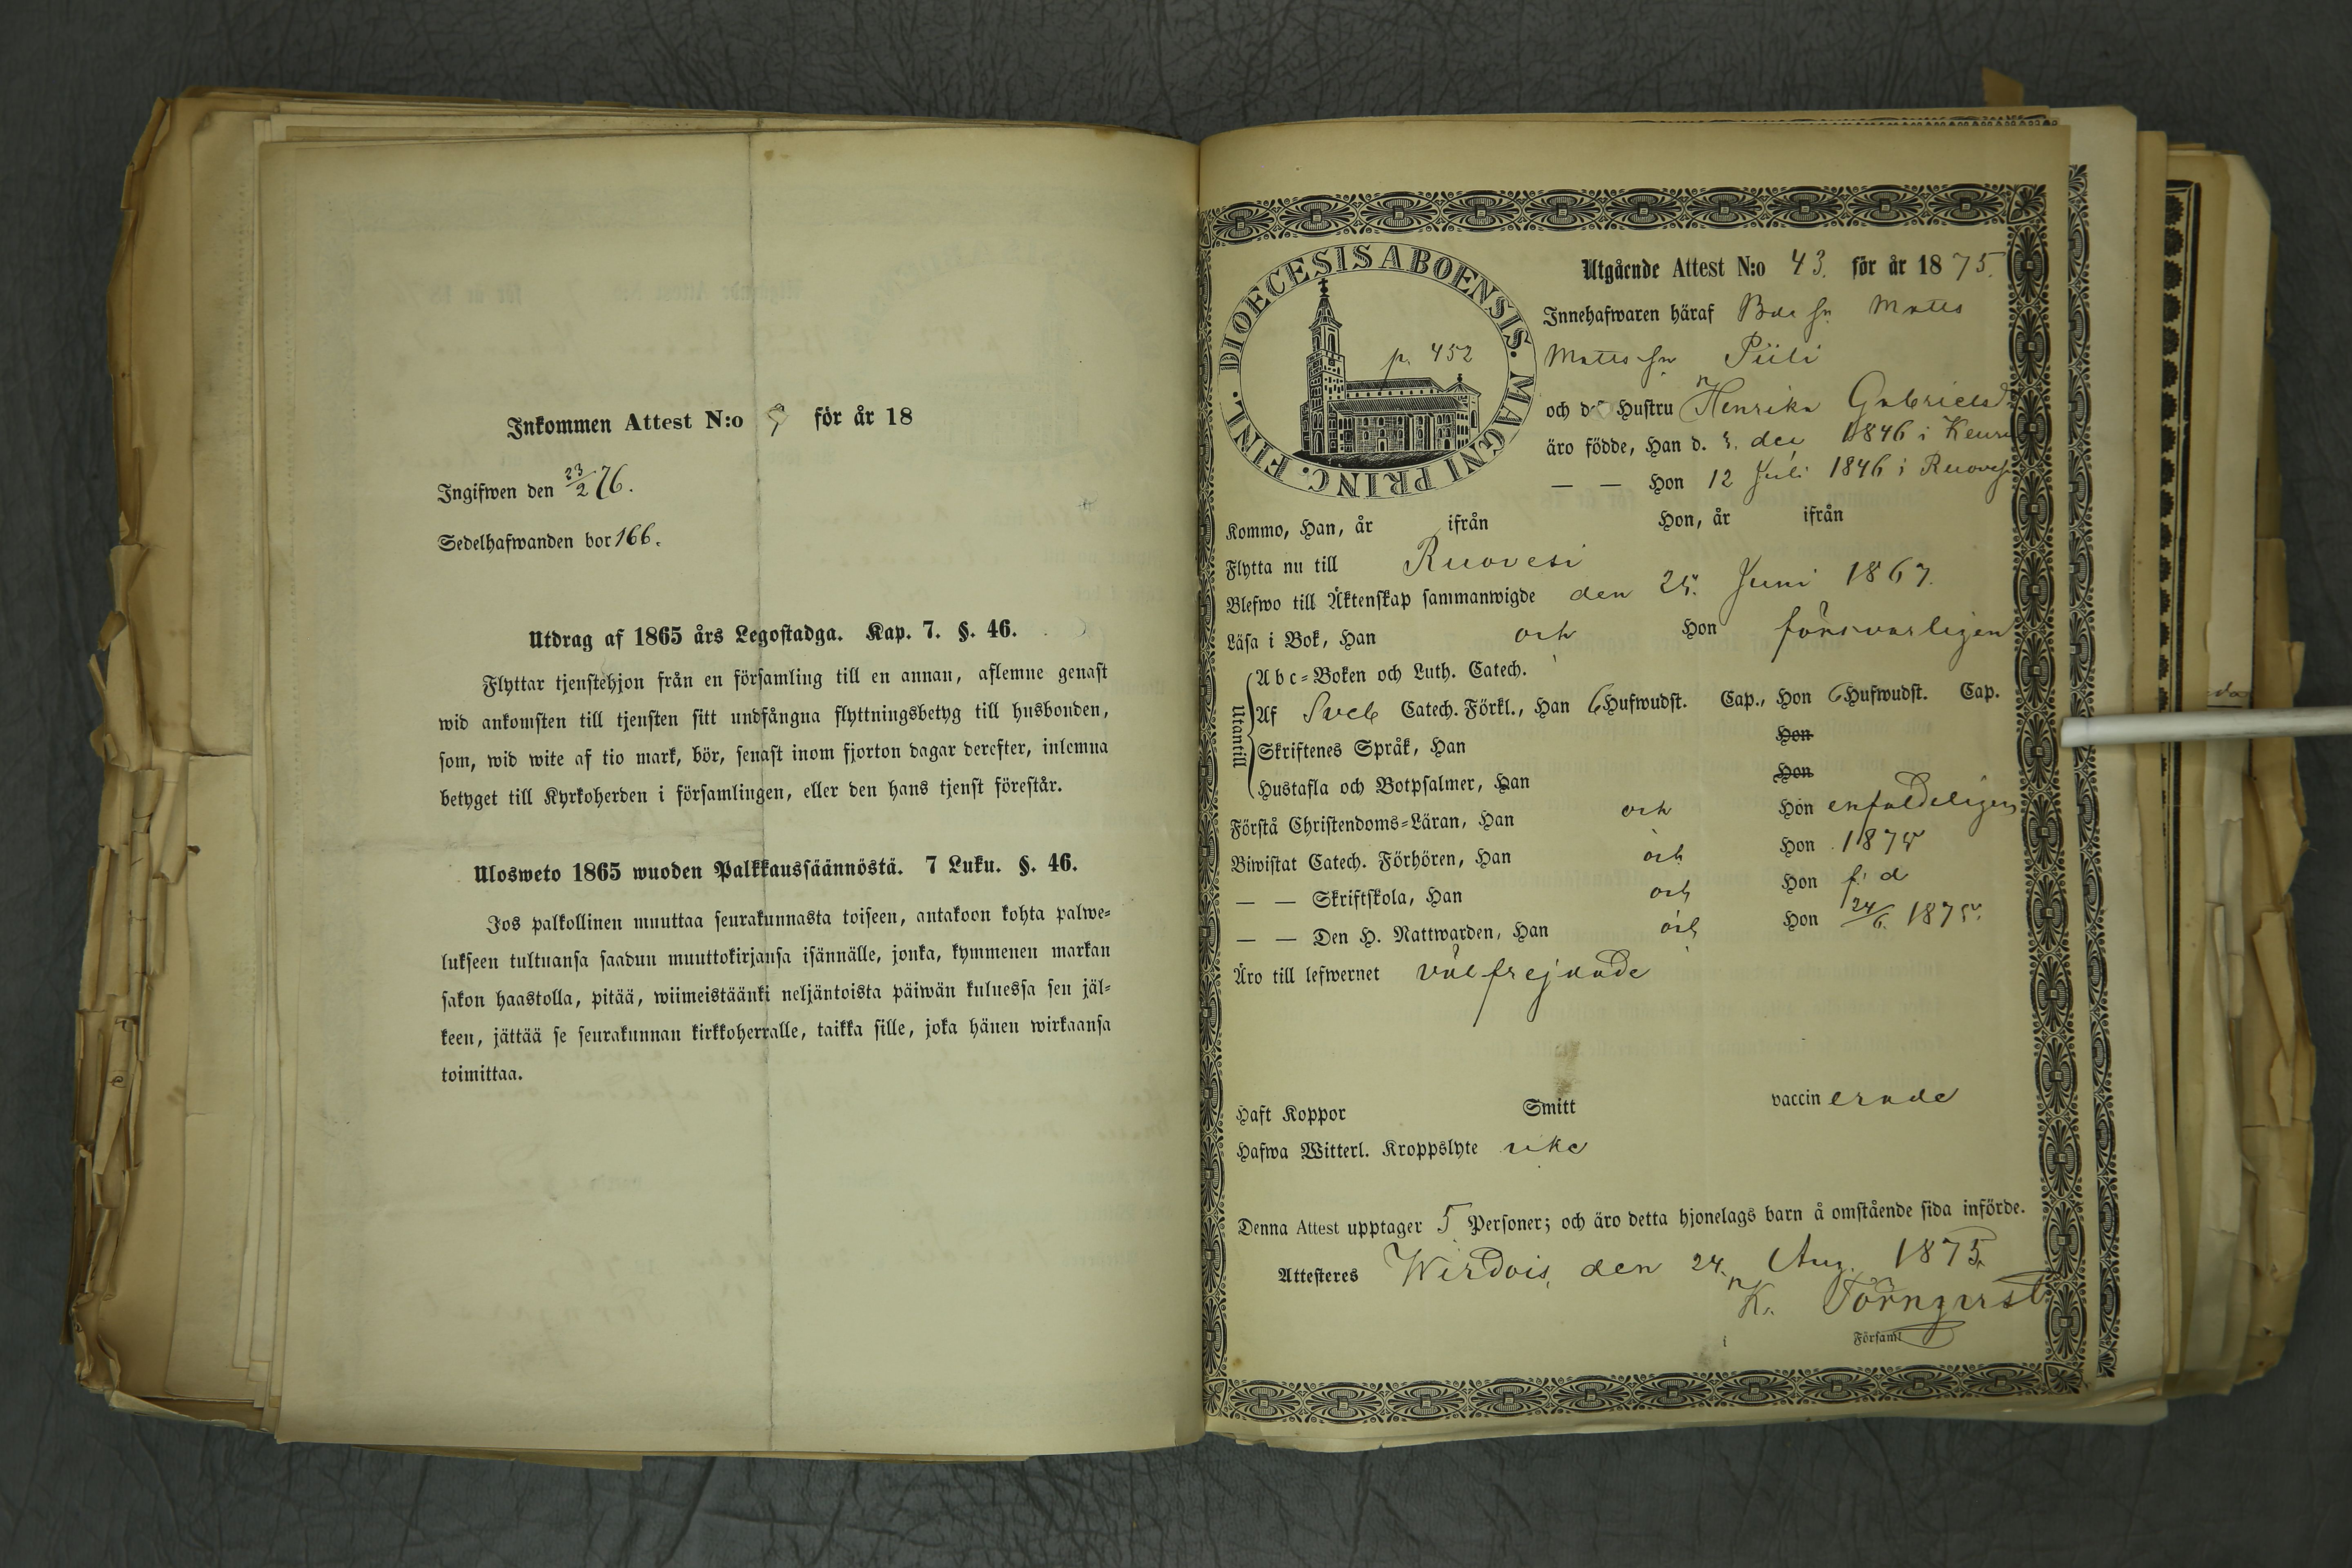 Inkommen Attest N:o 9 för år 18
Ingifwen den 23/2 76.
Sedelhafwanden bor 166.
Utdrag af 1865 års Legostadga. Kap. 7. §. 46.
Flyttar tjenstehjon från en församling till en annan, aflemne genast
wid ankomsten till tjensten sitt undfångna flyttningsbetyg till husbonden,
som, wid wite af tio mark, bör, senast inom fjorton dagar derefter, inlemna
betyget till Kyrkoherden i församlingen, eller den hans tjenst förestår.
Ulosweto 1865 wuoden Palkkaussäännöstä. 7 Luku. §. 46.
Jos palkollinen muuttaa seurakunnasta toiseen, antakoon kohta palwe-
lukseen tultuansa saadun muuttokirjansa isännälle, jonka, kymmenen markan
sakon haastolla, pitää, wiimeistäänki neljäntoista päiwän kuluessa sen jäl-
keen, jättää se seurakunnan kirkkoherralle, taikka sille, joka hänen wirkaansa
toimittaa.
DIOECESIS ABOENSIS. MAGNI PRINC. FINL.
p. 452
Utgående Attest N:o 43. för år 1875.
Innehafwaren häraf Matts
Mattss:n Piili
och Hustru Henrika Gabrielsd:r
äro födde, Han d. dec 1846 i
— — Hon 12 Juli 1846 i Ruovesi
Kommo, Han, år ifrån Hon, år ifrån
Flytta nu till Ruovesi
Blefwo till Äktenskap sammanwigde den 25. Juni 1867.
Läsa i Bok, Han och Hon försvarligen
Utantill
Abc-Boken och Luth. Catech.
Af Sveb Catech. Förkl., Han 6 Hufwudst. Cap., Hon 6 Hufwudst. Cap.
Skriftenes Språk, Han Hon
Hustafla och Botpsalmer, Han Hon
Förstå Christendoms-Läran, Han och Hon enfaldeligen
Biwistat Catech. Förhören, Han och Hon 1875
— — Skriftskola, Han och Hon
— — Den H. Nattwarden, Han och Hon 24/6 1875.
Äro till lefwernet välfrejdade
Haft Koppor Smitt vaccinerade
Hafwa Witterl. Kroppslyte icke
Denna Attest upptager 5 Personer; och äro detta hjonelags barn å omstående sida införde.
Attesteres Wirdois, den 24. Aug. 1875.
K. Törnqvist
i Församl